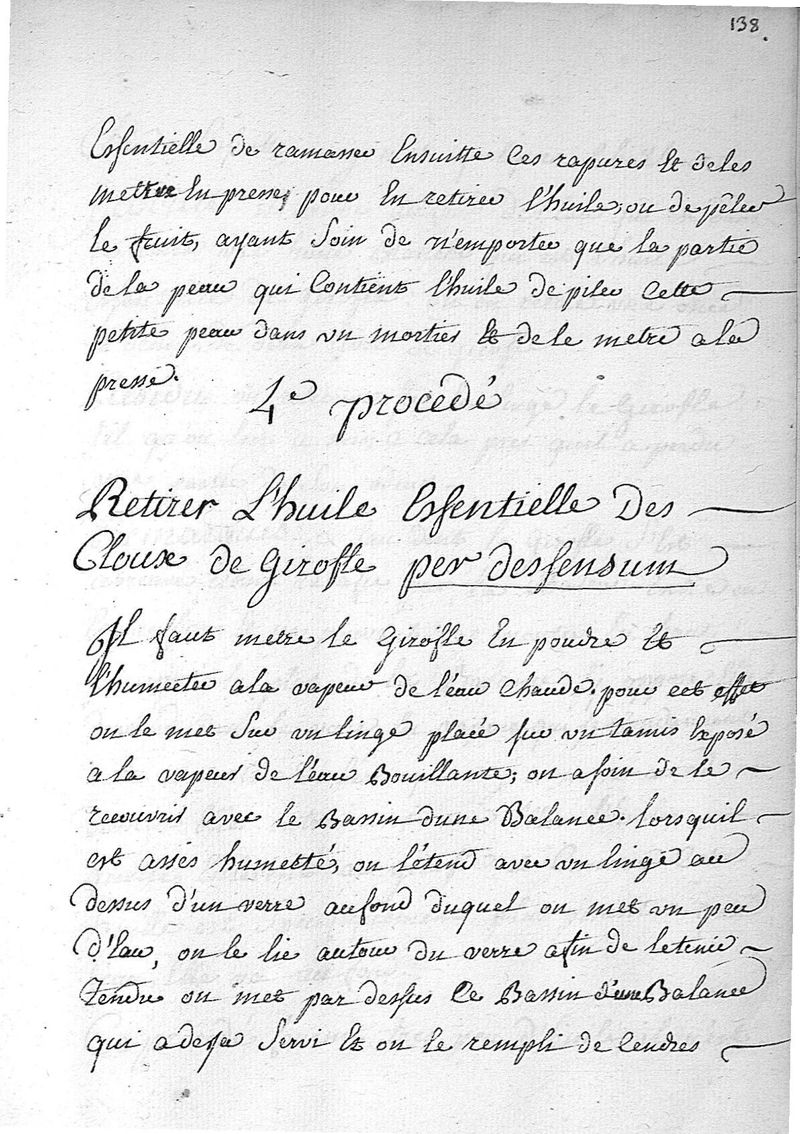 138.
Essentielle de ramasser Ensuitte Ces rapures Et de les
mettre En presse, pour En retirer l'huile, ou de pêler
le fruit, ayant Soin de n'emporter que la partie
de la peau qui Contient l'huile de piler Cette
petite peau dans un mortier Et de le metre a la
presse.
4e procedé
Retirer L'huile Essentielle Des
Cloux de Girofle per dessensum
Il faut metre le Girofle En poudre Et
l'humecter a la vapeur de l'eau Chaude. pour cet effet
on le met Sur un linge placée sur un tamis Exposé
a la vapeur de l'eau Bouillante; on a soin de le
recouvrir avec le Bassin dune Balance. lorsquil
est assés humetté, on l'étend avec un linge au
dessus d'un verre au fond duquel on met un peu
d'Eau, on le lie autour du verre afin de le tenir
Tendu on met par dessus Ce Bassin d'une Balance
qui a deja Servi Et on le rempli de Cendres